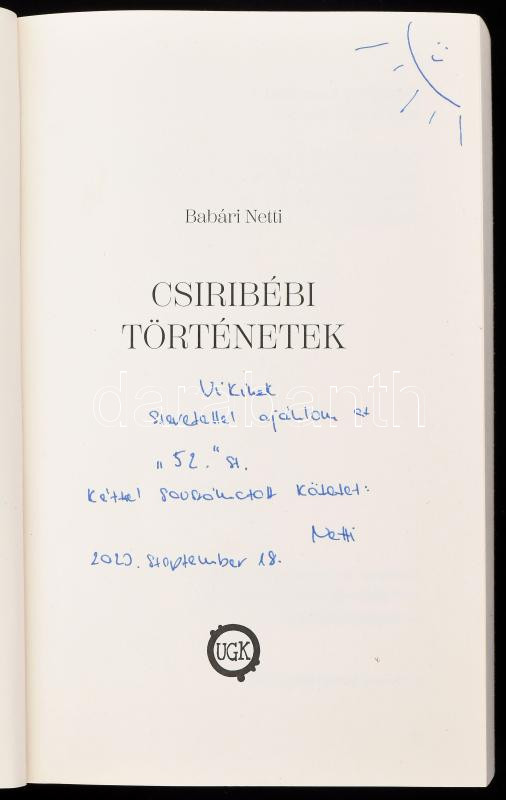 Babári Netti
CSIRIBÉBI
TÖRTÉNETEK
Vikinek
szeretettel ajánlom ezt
"52." sz.
Kézzel sorszámozott kötetet:
Netti
2023. szeptember 18.
UGK
darabanth